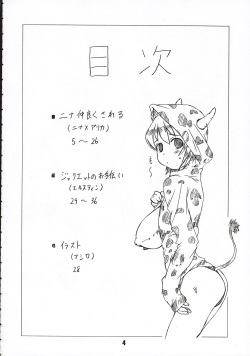 目次
■ ニナ仲良くされる
(ニナ×アリカ)
5～26
■ ジュリエットのお手伝い
(エルスティン)
29～36
■ イラスト
(マシロ)
28
も～
4